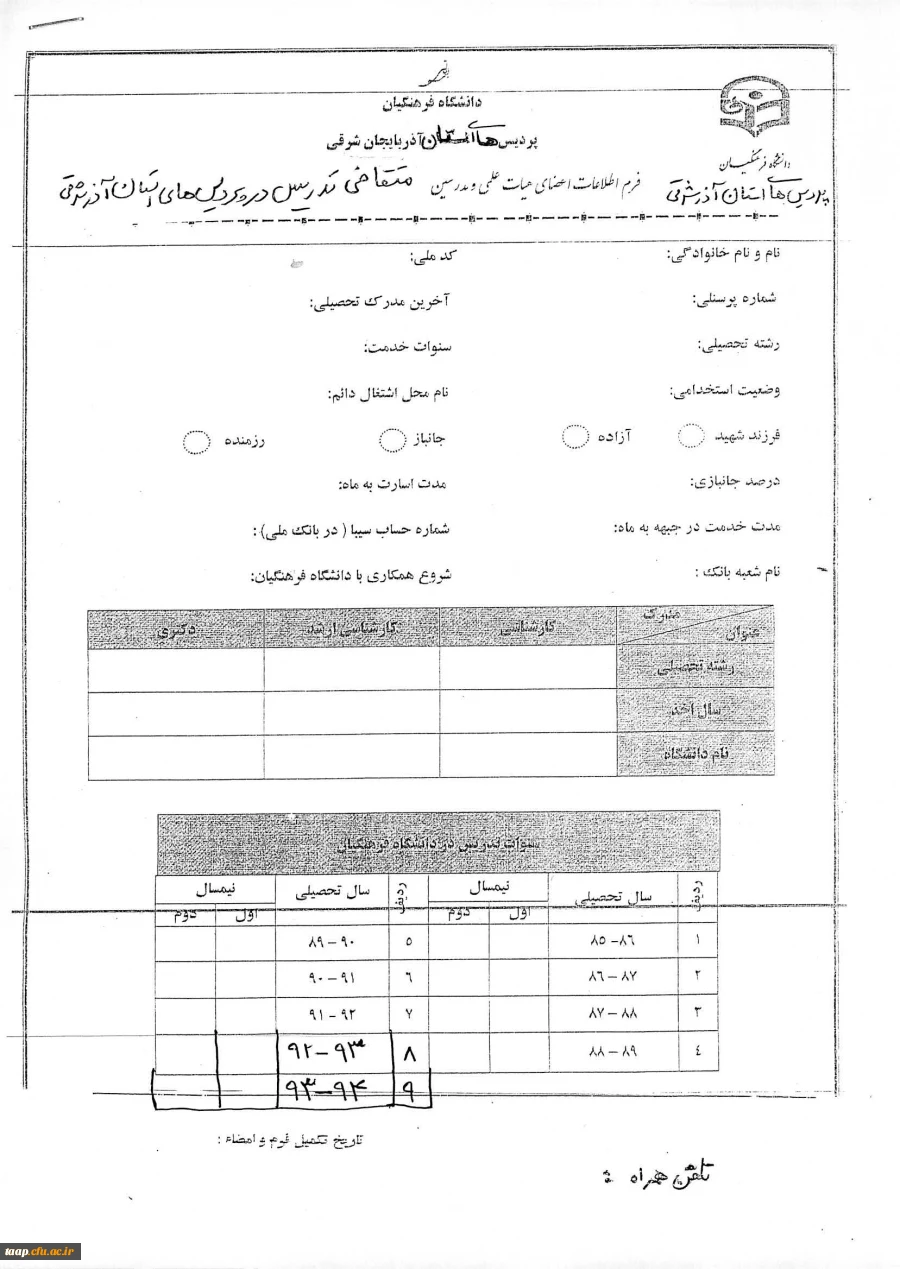 دانشگاه فرهنگیان
پردیس های استان آذربایجان شرقی
دانشگاه فرهنگیان
پردیس های استان آذرشرقی
فرم اطلاعات اعضای هیات علمی و مدرسین متقاضی تدریس در پردیس های استان آذرشرقی
نام و نام خانوادگی: کد ملی:
شماره پرسنلی: آخرین مدرک تحصیلی:
رشته تحصیلی: سنوات خدمت:
وضعیت استخدامی: نام محل اشتغال دائم:
فرزند شهید آزاده جانباز رزمنده
درصد جانبازی: مدت اسارت به ماه:
مدت خدمت در جبهه به ماه: شماره حساب سیبا ( در بانک ملی) :
نام شعبه بانک : شروع همکاری با دانشگاه فرهنگیان:
مدرک
عنوان کارشناسی کارشناسی ارشد دکتری
رشته تحصیلی
سال اخذ
نام دانشگاه
سنوات تدریس در دانشگاه فرهنگیان
ردیف سال تحصیلی نیمسال ردیف سال تحصیلی نیمسال
اول دوم اول دوم
۱ ۸۵–۸۶ ۵ ۸۹–۹۰
۲ ۸۶–۸۷ ۶ ۹۰–۹۱
۳ ۸۷–۸۸ ۷ ۹۱–۹۲
۴ ۸۸–۸۹ ۸ ۹۲–۹۳
۹ ۹۳–۹۴
تاریخ تکمیل فرم و امضاء :
تلفن همراه :
taap.cfu.ac.ir